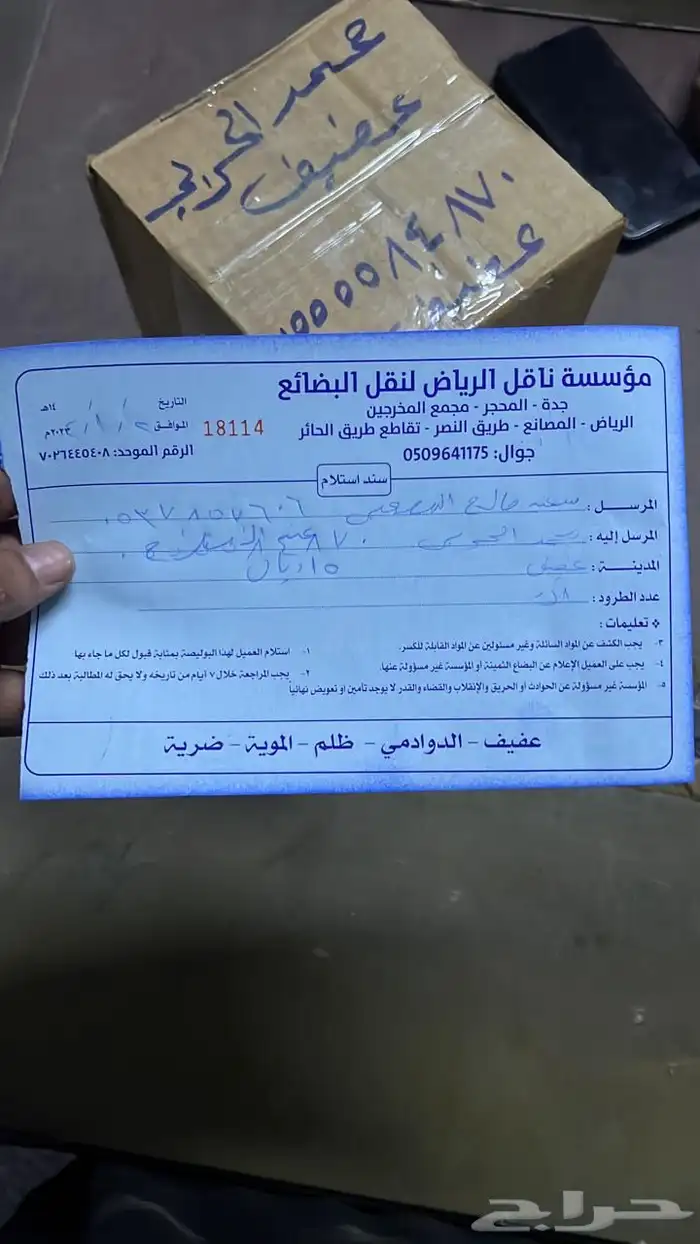 محمد الحربي
عفيف
٠٥٥٥٥٨٤٨٧٠
عفيف
مؤسسة ناقل الرياض لنقل البضائع
جدة - المحجر - مجمع المخرجين
الرياض - المصانع - طريق النصر - تقاطع طريق الحائر
جوال: 0509641175
التاريخ / / ١٤هـ
18114
الموافق / / ٢٠٢٤م
الرقم الموحد: ٧٠٢٦٤٤٥٤٠٨
سند استلام
المرسل:
المرسل إليه:
المدينة: عفيف ١٥ ريال
عدد الطرود:
تعليمات:
١- استلام العميل لهذا البوليصة بمثابة قبول لكل ما جاء بها
٢- يجب المراجعة خلال ٧ أيام من تاريخه ولا يحق له المطالبة بعد ذلك
٣- يجب الكشف عن المواد السائلة وغير مسئولين عن المواد القابلة للكسر.
٤- يجب على العميل الإعلام عن البضائع الثمينة أو المؤسسة غير مسؤولة عنها.
٥- المؤسسة غير مسؤولة عن الحوادث أو الحريق والإنقلاب والقضاء والقدر لا يوجد تأمين أو تعويض نهائياً
عفيف - الدوادمي - ظلم - الموية - ضرية
حراج